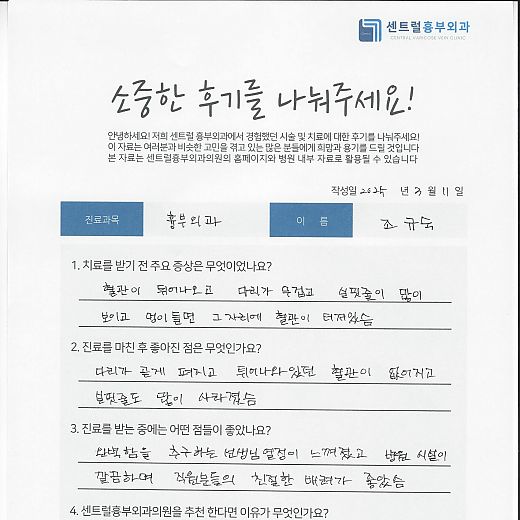 센트럴흉부외과
CENTRAL VARICOSE VEIN CLINIC
소중한 후기를 나눠주세요!
안녕하세요! 저희 센트럴 흉부외과에서 경험했던 시술 및 치료에 대한 후기를 나눠주세요!
이 자료는 여러분과 비슷한 고민을 겪고 있는 많은 분들에게 희망과 용기를 드릴 것입니다
본 자료는 센트럴흉부외과의원의 홈페이지와 병원 내부 자료로 활용될 수 있습니다
작성일 2025 년 3 월 11 일
진료과목 흉부외과 이 름 조규숙
1. 치료를 받기 전 주요 증상은 무엇이었나요?
혈관이 튀어나오고 다리가 무겁고 실핏줄이 많이
보이고 멍이들면 그자리에 혈관이 터져있슴
2. 진료를 마친 후 좋아진 점은 무엇인가요?
다리가 곧게 펴지고 튀어나와있던 혈관이 없어지고
실핏줄도 많이 사라졌슴
3. 진료를 받는 중에는 어떤 점들이 좋았나요?
완벽함을 추구하는 선생님 열정이 느껴졌고 병원 시설이
깔끔하며 직원분들의 친절한 배려가 좋았슴
4. 센트럴흉부외과의원을 추천 한다면 이유가 무엇인가요?